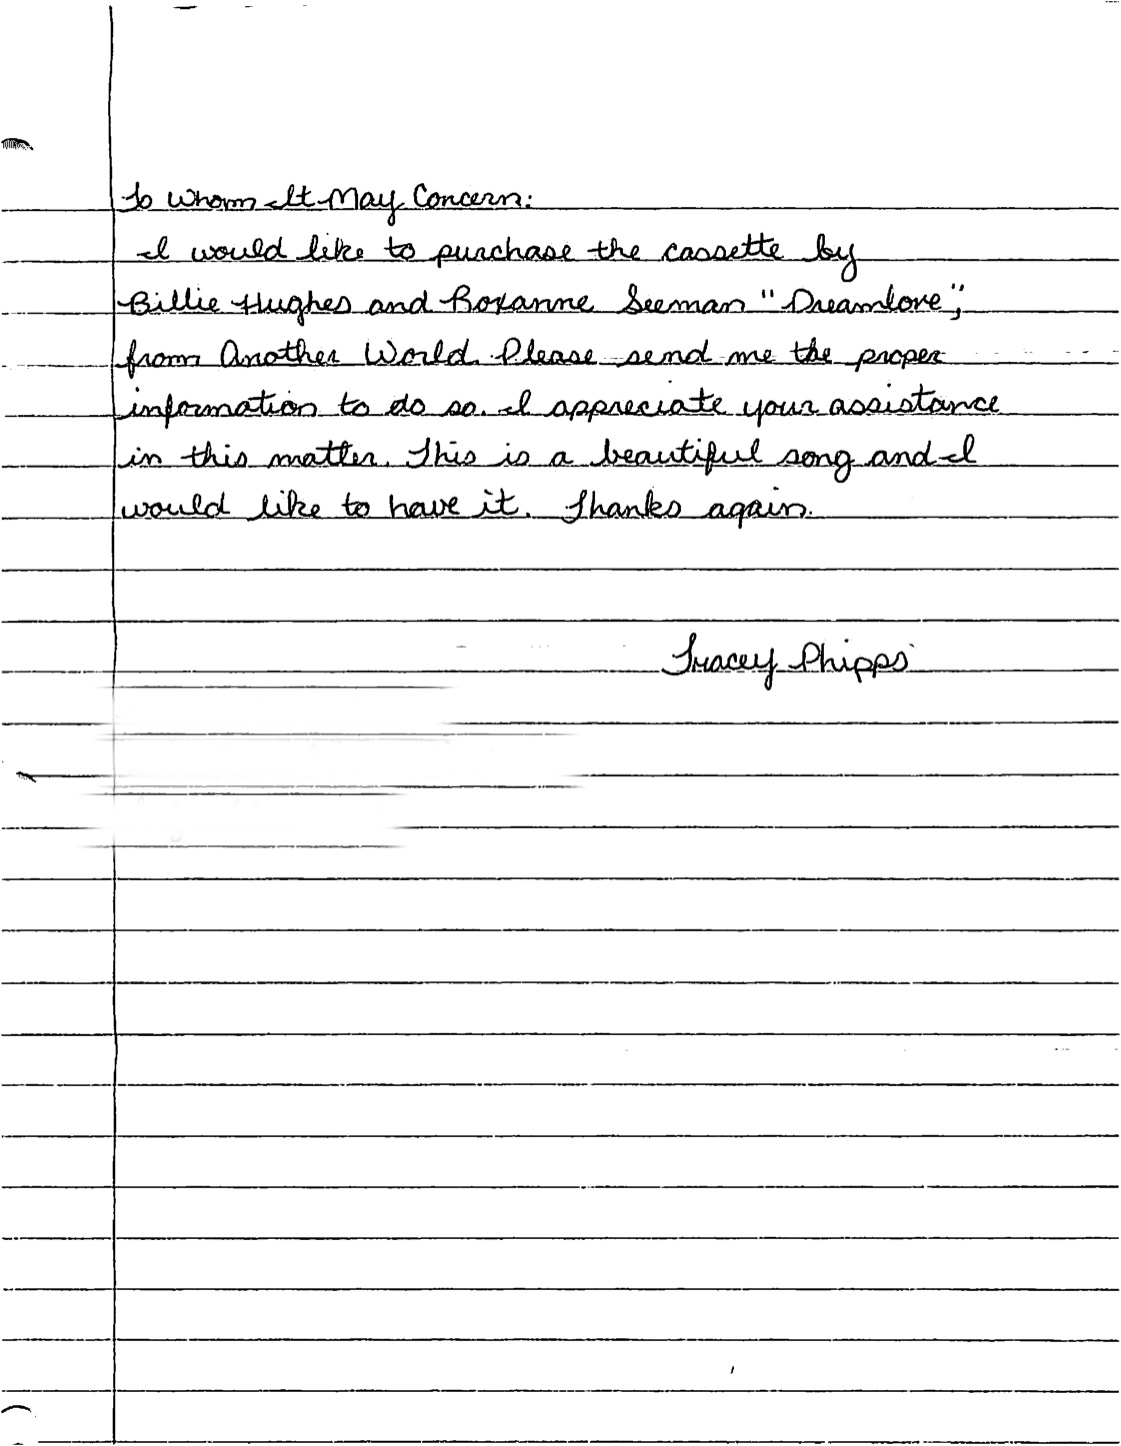 To Whom It May Concern:
I would like to purchase the cassette by
Billie Hughes and Roxanne Seeman "Dreamlove",
from Another World. Please send me the proper
information to do so. I appreciate your assistance
in this matter. This is a beautiful song and I
would like to have it. Thanks again.
Tracey Phipps